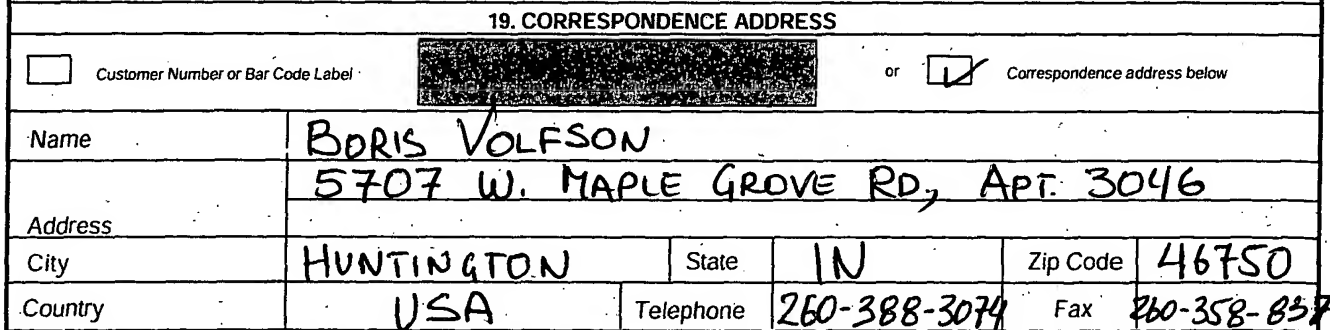 19. CORRESPONDENCE ADDRESS
Customer Number or Bar Code Label or Correspondence address below
Name BORIS VOLFSON
5707 W. MAPLE GROVE RD, APT. 3046
Address
City HUNTINGTON State IN Zip Code 46750
Country USA Telephone 260-388-3074 Fax